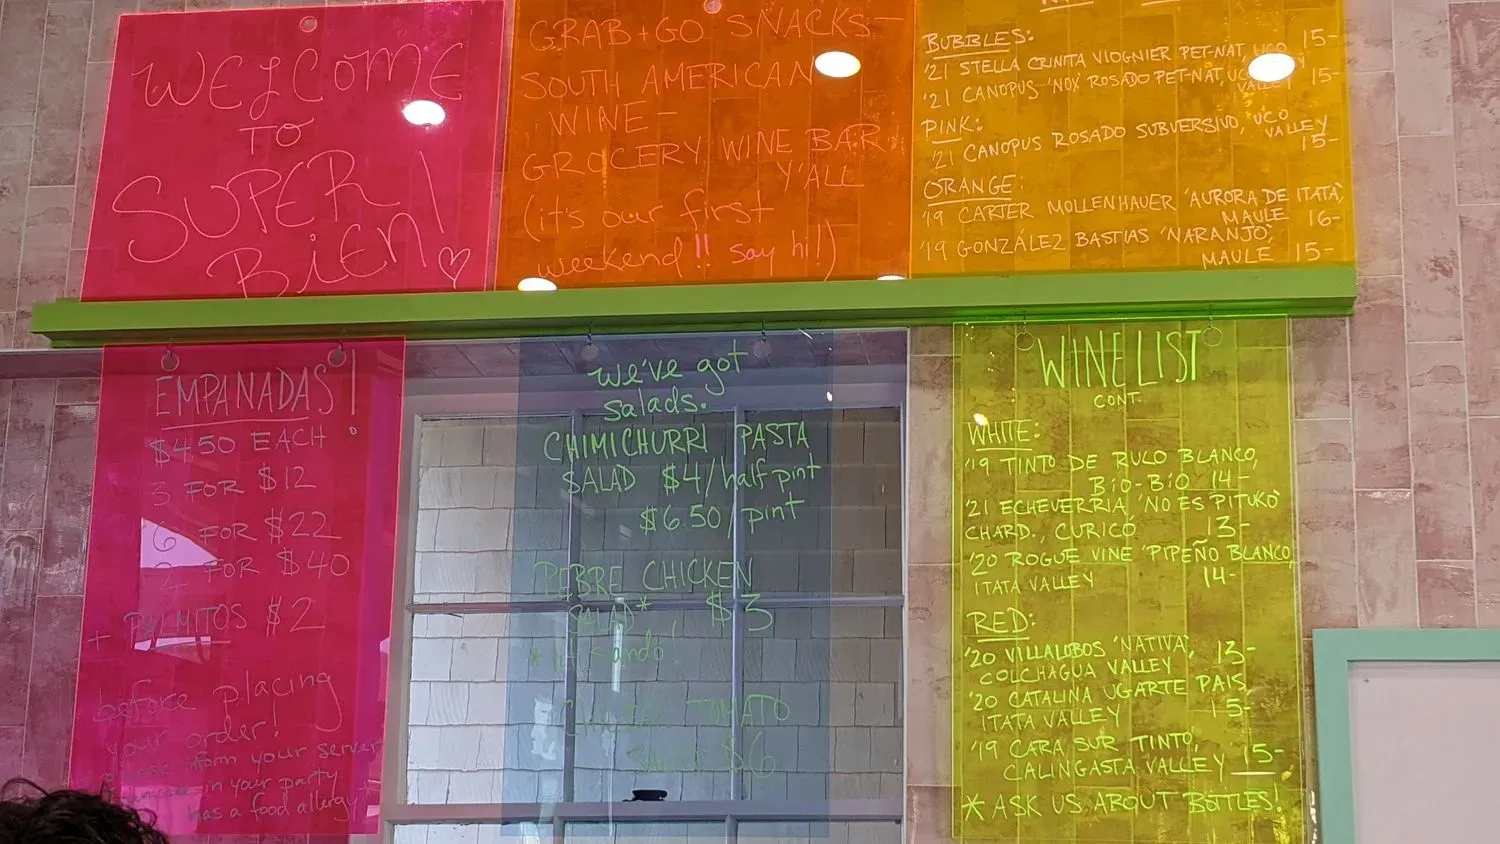 WELCOME
TO
SUPER
BIEN!
GRAB+GO SNACKS—
SOUTH AMERICAN
WINE—
GROCERY WINE BAR
Y'ALL
(it's our first
weekend!! say hi!)
BUBBLES:
'21 STELLA CRINITA VIOGNIER PET-NAT, UCO 15-
'21 CANOPUS 'NOX ROSADO PET-NAT, UCO 15-
VALLEY
PINK:
'21 CANOPUS ROSADO SUBVERSIVO, 'UCO
VALLEY
15-
ORANGE:
'19 CARTER MOLLENHAUER 'AURORA DE ITATA,'
MAULE 16-
'19 GONZÁLEZ BASTIAS 'NARANJO'
MAULE 15-
EMPANADAS!
$4.50 EACH
3 FOR $12
6 FOR $22
FOR $40
+ PALMITOS $2
before placing
your order!
inform your server
in your party
has a food allergy*
we've got
salads.
CHIMICHURRI PASTA
SALAD $4/half pint
$6.50/pint
PEBRE CHICKEN
SALAD* $3
sando!
TOMATO
$6
WINE LIST
CONT.
WHITE:
'19 TINTO DE RULO BLANCO,
BÍO-BÍO 14-
'21 ECHEVERRIA 'NO ES PITUKO'
CHARD., CURICÓ 13-
'20 ROGUE VINE 'PIPEÑO BLANCO,
ITATA VALLEY 14-
RED:
'20 VILLALOBOS 'NATIVA', 13-
COLCHAGUA VALLEY
'20 CATALINA UGARTE PAIS,
ITATA VALLEY 15-
'19 CARA SUR TINTO,
CALINGASTA VALLEY 15-
* ASK US ABOUT BOTTLES!